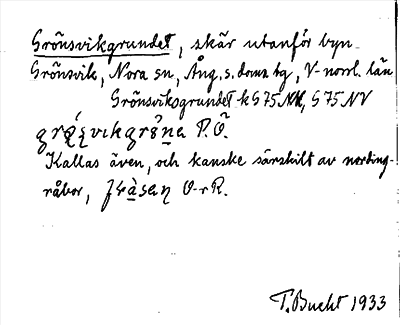 Grönsvikgrundet, skär utanför byn
Grönsvik, Nora sn, Ång. s. doms bg, V-norrl. län
Grönsviksgrundet k G75 NV, G 75 NV
P.Ö.
Kallas även, och kanske särskilt av nording-
råbor, O-r R.
T. Bucht 1933